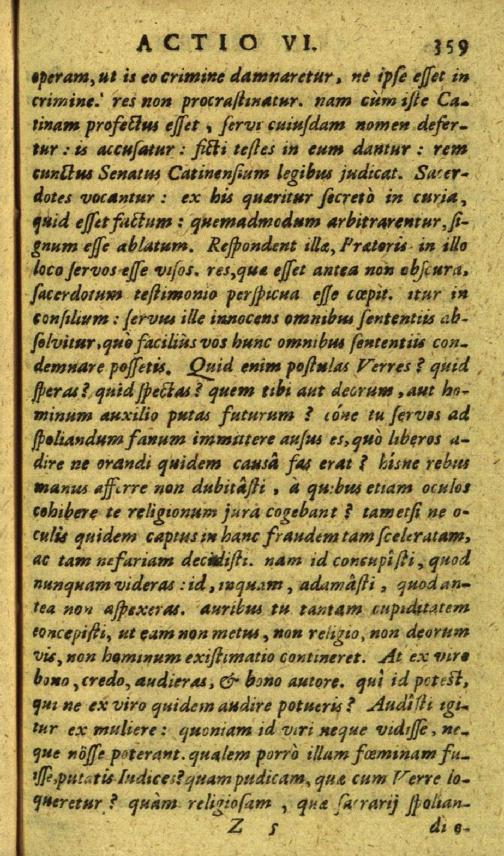 ACTIO VI. 359
operam, ut is eo crimine damnaretur, ne ipse esset in
crimine. res non procrastinatur. nam cùm iste Ca-
tinam profectus esset, servi cuiusdam nomen defer-
tur: is accusatur: ficti testes in eum dantur: rem
cunctus Senatus Catinensium legibus judicat. Sacer-
dotes vocantur: ex his quæritur secretò in curia,
quid esset factum: quemadmodum arbitrarentur, si-
gnum esse ablatum. Respondent illæ, Prætoris in illo
loco servos esse visos. res, quæ esset antea non obscura,
sacerdotum testimonio perspicua esse cœpit. itur in
consilium: servus ille innocens omnibus sententiis ab-
solvitur, quò facilius vos hunc omnibus sententiis con-
demnare possetis. Quid enim postulas Verres? quid
speras? quid spectas? quem tibi aut deorum, aut ho-
minum auxilio putas futurum? eóne tu servos ad
spoliandum fanum immittere ausus es, quò liberos a-
dire ne orandi quidem causâ fas erat? hisne rebus
manus afferre non dubitâsti, à quibus etiam oculos
cohibere te religionum jura cogebant? tametsi ne o-
culis quidem captus in hanc fraudem tam sceleratam,
ac tam nefariam decidisti. nam id concupîsti, quod
nunquam videras: id, inquam, adamâsti, quod an-
tea non aspexeras. auribus tu tantam cupiditatem
concepisti, ut eam non metus, non religio, non deorum
vis, non hominum existimatio contineret. At ex viro
bono, credo, audieras, & bono autore. quî id potest,
qui ne ex viro quidem audire potueris? Audîsti igi-
tur ex muliere: quoniam id viri neque vidisse, ne-
que nôsse poterant. qualem porrò illam fœminam fu-
isse, putatis Iudices? quam pudicam, quæ cum Verre lo-
queretur? quàm religiosam, quæ sacrarij spolian-
Z 5 di e-